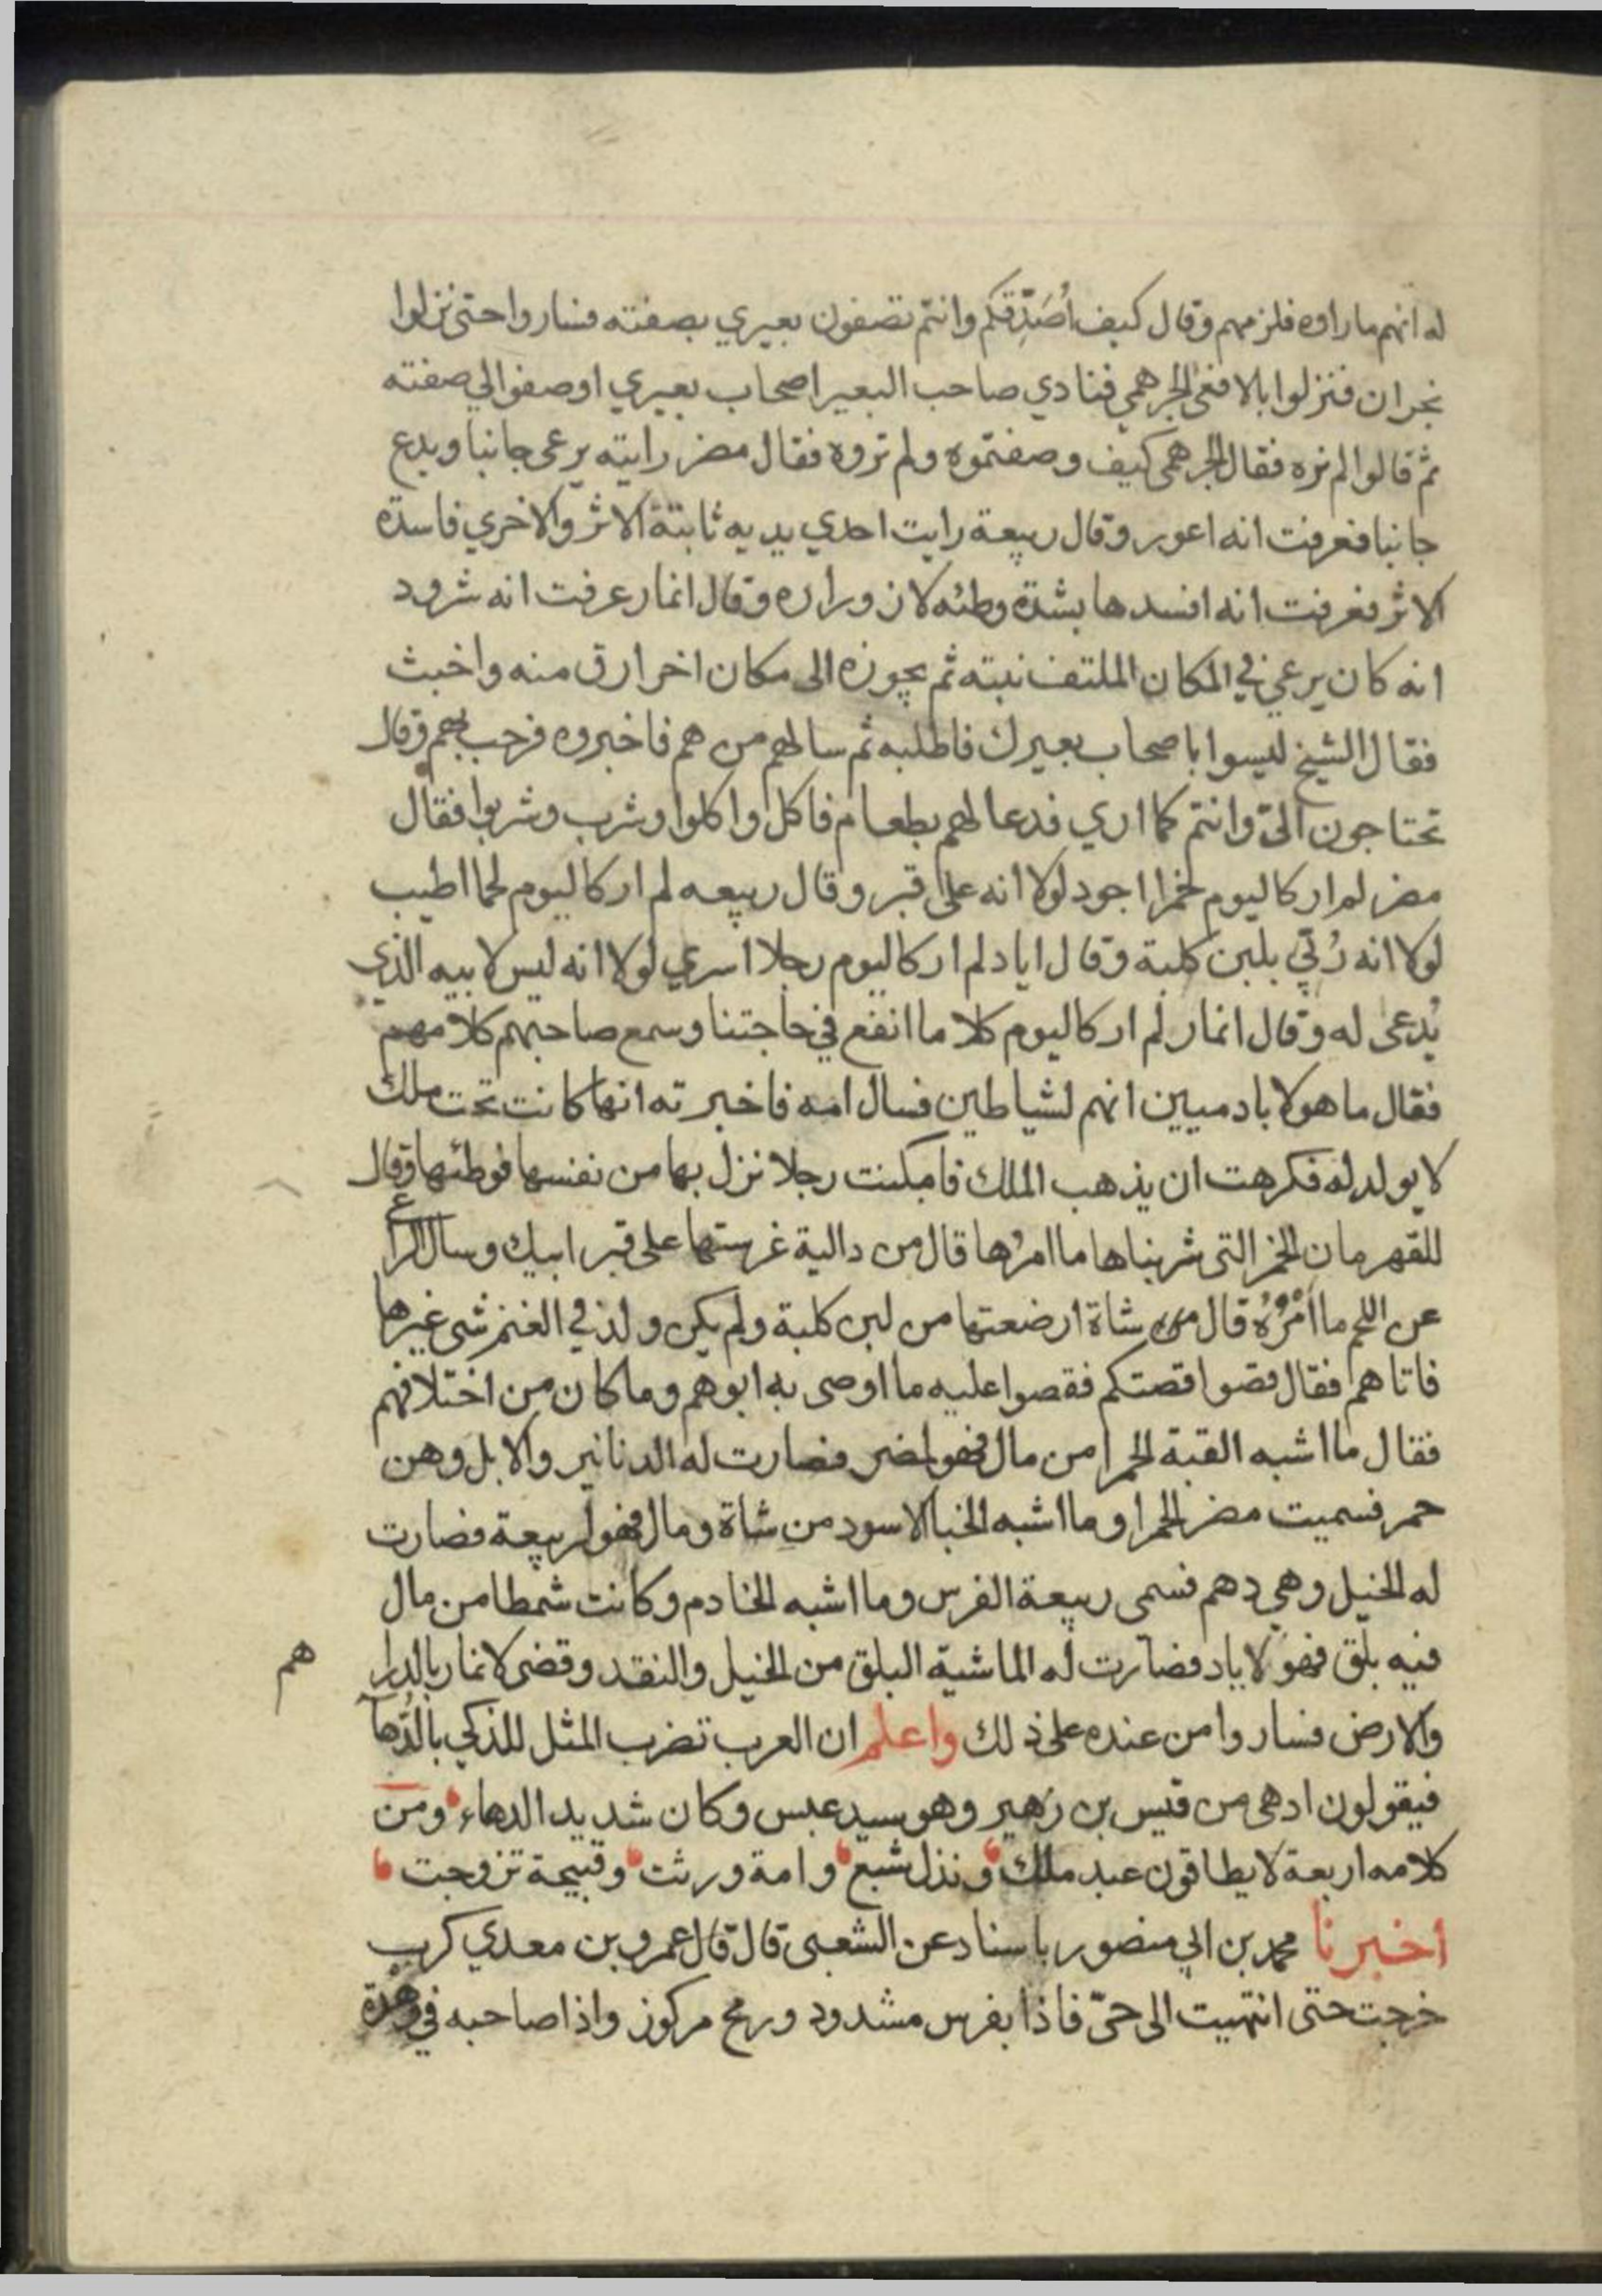 له انهم ماراوه فلزمهم وقال كيف أصَدِّقكم وانتم تصفون بعيري بصفته فساروا حتى نزلوا
نجران فنزلوا بالافعى الجرهمي فنادي صاحب البعير اصحاب بعيري اوصفوا لي صفته
ثم قالوا لم نره فقال الجرهمي كيف وصفتموه ولم تروه فقال مضر رايته يرعى جانبا ويدع
جانبا فعرفت انه اعور وقال ربيعة رايت احدي يديه ثابتة الاثر والاخري فاسدة
الاثر فعرفت انه افسدها بشدة وطئه لازوراره وقال انمار عرفت انه شرود
انه كان يرعي في المكان الملتف نبته ثم يجوزه الى مكان اخر ارق منه واخبث
فقال الشيخ ليسوا باصحاب بعيرك فاطلبه ثم سالهم من هم فاخبروه فرحب بهم وقال
تحتاجون الىّ وانتم كما اري فدعا لهم بطعام فاكل واكلوا وشرب وشربوا فقال
مضر لم ار كاليوم خمرا اجود لولا انه على قبر وقال ربيعه لم ار كاليوم لحما اطيب
لولا انه رُبّي بلبن كلبة وقال اياد لم ار كاليوم رجلا اسري لولا انه ليس لابيه الذي
يُدعى له وقال انمار لم ار كاليوم كلاما انفع في حاجتنا وسمع صاحبهم كلامهم
فقال ما هولا بادميين انهم لشياطين فسال امه فاخبرته انها كانت تحت ملك
لا يولد له فكرهت ان يذهب الملك فامكنت رجلا نزل بها من نفسها فوطئها وقال
للقهرمان الخمر التى شربناها ما امرُها قال من دالية غرستها على قبر ابيك وسال الراع
عن اللحم ما أمْرُهُ قال من شاة ارضعتها من لبن كلبة ولم يكن ولد في الغنم شى غيرها
فاتاهم فقال قصوا قصتكم فقصوا عليه ما اوصى به ابوهم وما كان من اختلافهم
فقال ما اشبه القبة الحمرا من مال فهو لمضر فصارت له الدنانير والابل وهن
حمر فسميت مضر الحمرا وما اشبه الخبا الاسود من شاة ومال فهو لربيعة فصارت
له الخيل وهي دهم فسمى ربيعة الفرس وما اشبه الخادم وكانت شمطا من مال
فيه بلق فهو لاياد فصارت له الماشية البلق من الخيل والنقد وقضى لانمار بالدرا هم
والارض فساروا من عنده على ذلك واعلم ان العرب تضرب المثل للذكي بالدُّها
فيقولون ادهى من قيس بن زهير وهو سيد عبس وكان شديد الدهاء ومن
كلامه اربعة لا يطاقون عبد ملك ونذل شبع وامة ورثت وقبيحة تزوجت
اخبرنا محمد بن ابي منصور باسناد عن الشعبى قال قال عمرو بن معدي كرب
خرجت حتى انتهيت الى حىّ فاذا بفرس مشدود ورمح مركوز واذا صاحبه في وهدة